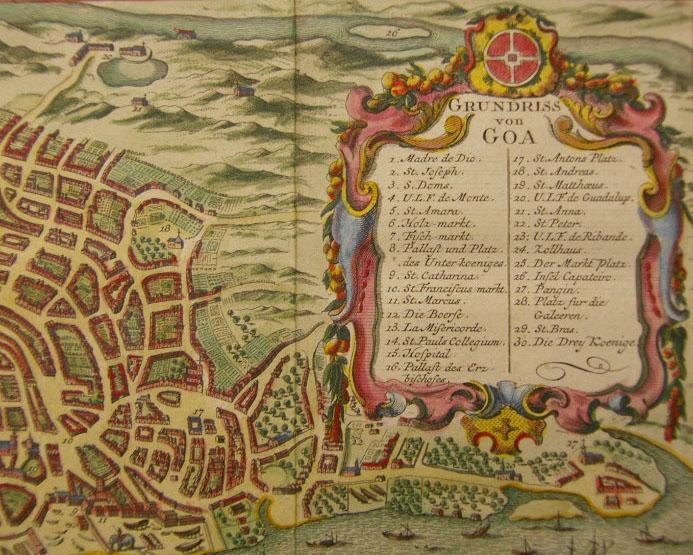 GRUNDRISS
von
GOA
1. Madre de Dio.
2. St. Joseph.
3. S. Doms.
4. U.L.F. de Monte.
5. St. Amara.
6. Holz-markt.
7. Fisch-markt.
8. Pallast und Platz
des Unter-koeniges.
9. St. Catharina.
10. St. Franciscus markt.
11. St. Marcus.
12. Die Boerse.
13. La Misericorde.
14. St. Pauls Collegium.
15. Hospital
16. Pallast des Erz-
bischofes.
17. St. Antons Platz.
18. St. Andreas.
19. St. Matthæus.
20. U.L.F. de Guadalup.
21. St. Anna.
22. St. Peter.
23. U.L.F. de Ribande.
24. Zollhaus.
25. Der Markt Platz.
26. Insel Capateiro.
27. Pangin.
28. Platz fur die
Galeeren.
29. St. Bras.
30. Die Drey Koenige.
26
18
17
16
27
9
11